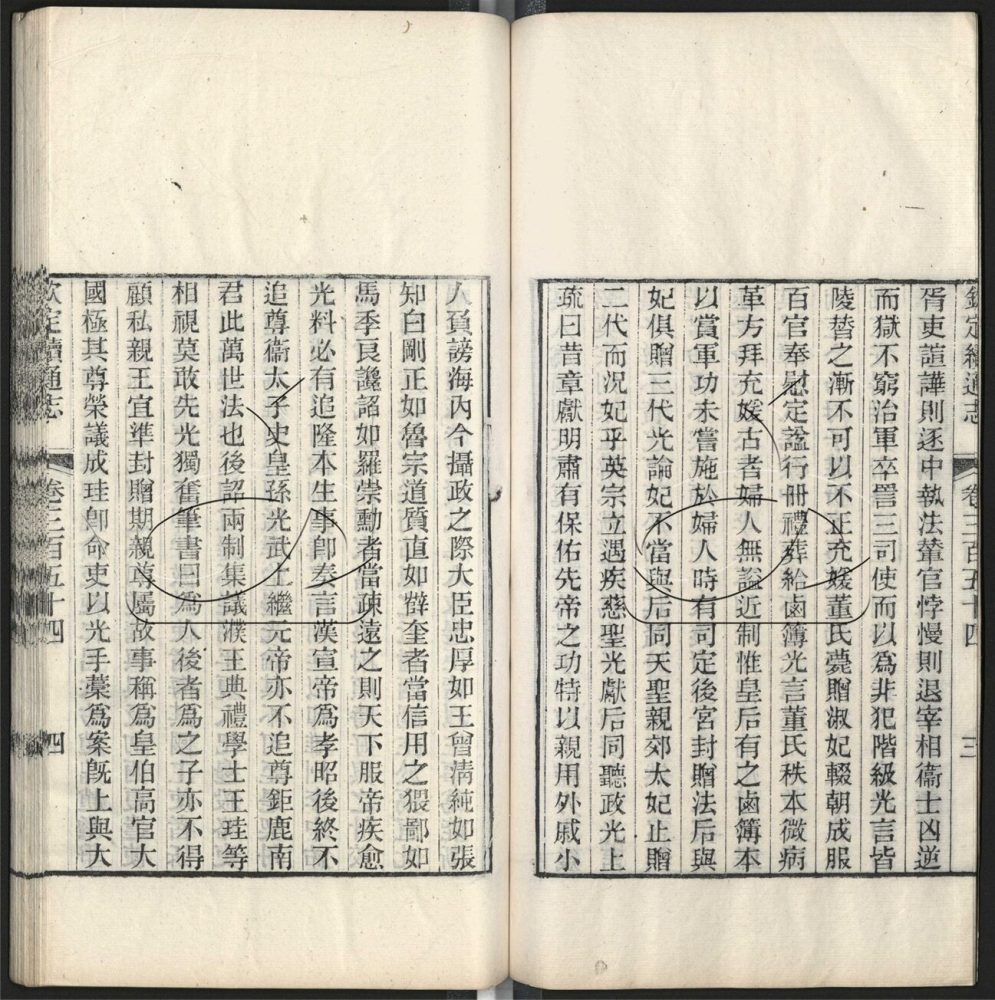 欽定續通志 卷三百五十四 三
胥吏諠譁則逐中執法輦官悖慢則退宰相衞士凶逆
而獄不窮治軍卒詈三司使而以爲非犯階級光言皆
陵替之漸不可以不正充媛董氏薨贈淑妃輟朝成服
百官奉慰定諡行冊禮葬給鹵簿光言董氏秩本微病
革方拜充媛古者婦人無諡近制惟皇后有之鹵簿本
以賞軍功未嘗施於婦人時有司定後宮封贈法后與
妃俱贈三代光論妃不當與后同天聖親郊太妃止贈
二代而況妃乎英宗立遇疾慈聖光獻后同聽政光上
疏曰昔章獻明肅有保佑先帝之功特以親用外戚小
人負謗海內今攝政之際大臣忠厚如王曾淸純如張
知白剛正如魯宗道質直如薛奎者當信用之猥鄙如
馬季良讒諂如羅崇勳者當疎遠之則天下服帝疾愈
光料必有追隆本生事卽奏言漢宣帝爲孝昭後終不
追尊衞太子史皇孫光武上繼元帝亦不追尊鉅鹿南
君此萬世法也後詔兩制集議濮王典禮學士王珪等
相視莫敢先光獨奮筆書曰爲人後者爲之子亦不得
顧私親王宜準封贈期親尊屬故事稱爲皇伯高官大
國極其尊榮議成珪卽命吏以光手藁爲案旣上與大
欽定續通志 卷三百五十四 四